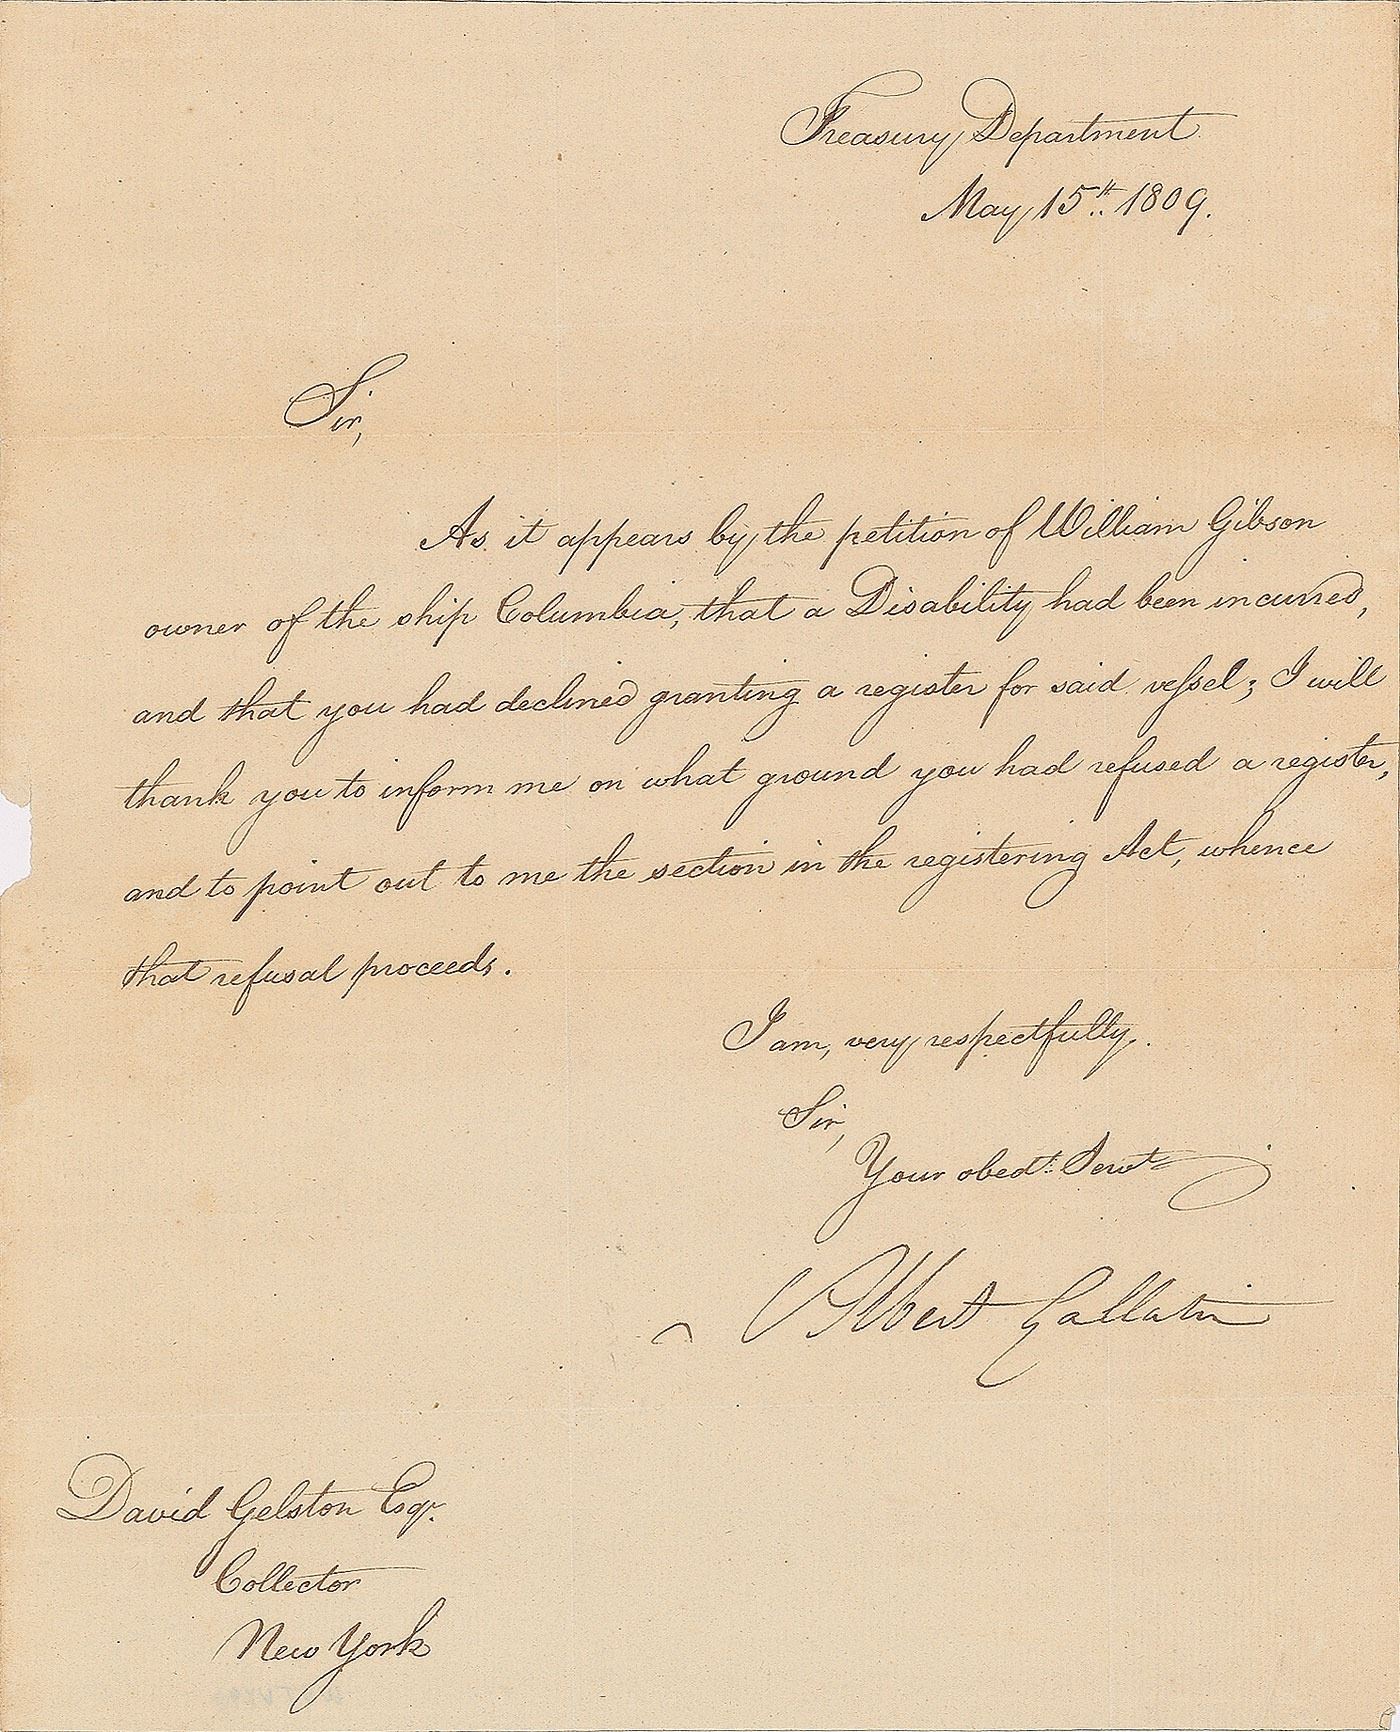 Treasury Department
May 15th. 1809.
Sir,
As it appears by the petition of William Gibson
owner of the ship Columbia, that a Disability had been incurred,
and that you had declined granting a register for said veſsel; I will
thank you to inform me on what ground you had refused a register,
and to point out to me the section in the registering Act, whence
that refusal proceeds.
I am, very respectfully.
Sir,
Your obedt. Servt.
Albert Gallatin
David Gelston Esqr.
Collector
New York